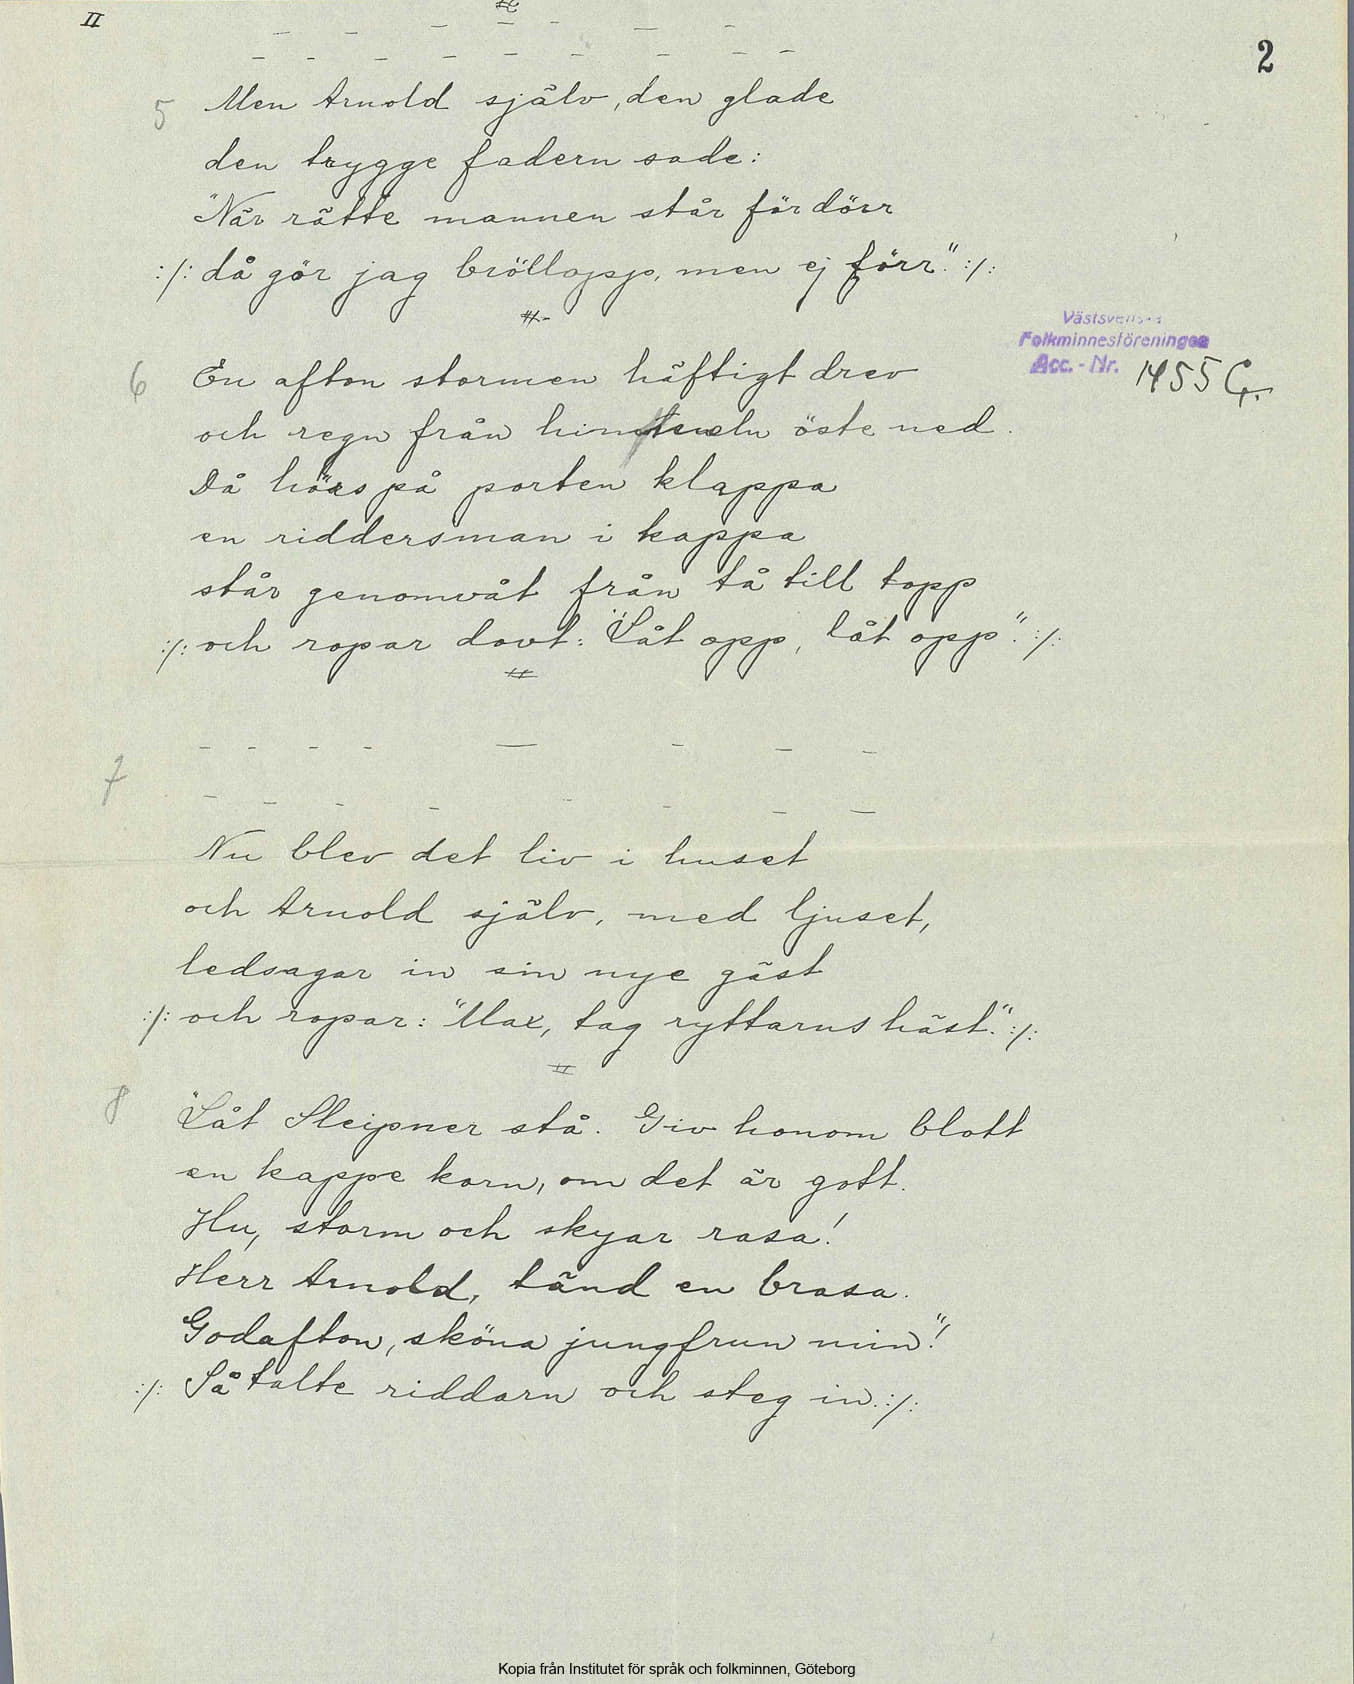 II
2
— — — — — — —
— — — — — — — — —
5 Men Arnold själv, den glade
den trygge fadern sade:
"När rätte mannen står för dörr
:/: då gör jag bröllopp, men ej förr." :/:
6 En afton stormen häftigt drev
Västsvenska
Folkminnesföreningen
Acc. - Nr. 1455 G.
och regn från himmeln öste ned.
Då hörs på porten klappa
en riddersman i kappa
står genomvåt från tå till topp
:/: och ropar dovt: "Låt opp, låt opp". :/:
7 — — — — — — — —
— — — — — — — —
Nu blev det liv i huset
och Arnold själv, med ljuset,
ledsagar in sin nye gäst
:/: och ropar: "Max, tag ryttarns häst." :/:
8 "Låt Sleipner stå. Giv honom blott
en kappe korn, om det är gott.
Hu, storm och skyar rasa!
Herr Arnold, tänd en brasa.
Godafton, sköna jungfrun min"!
:/: Så talte riddarn och steg in. :/:
Kopia från Institutet för språk och folkminnen, Göteborg